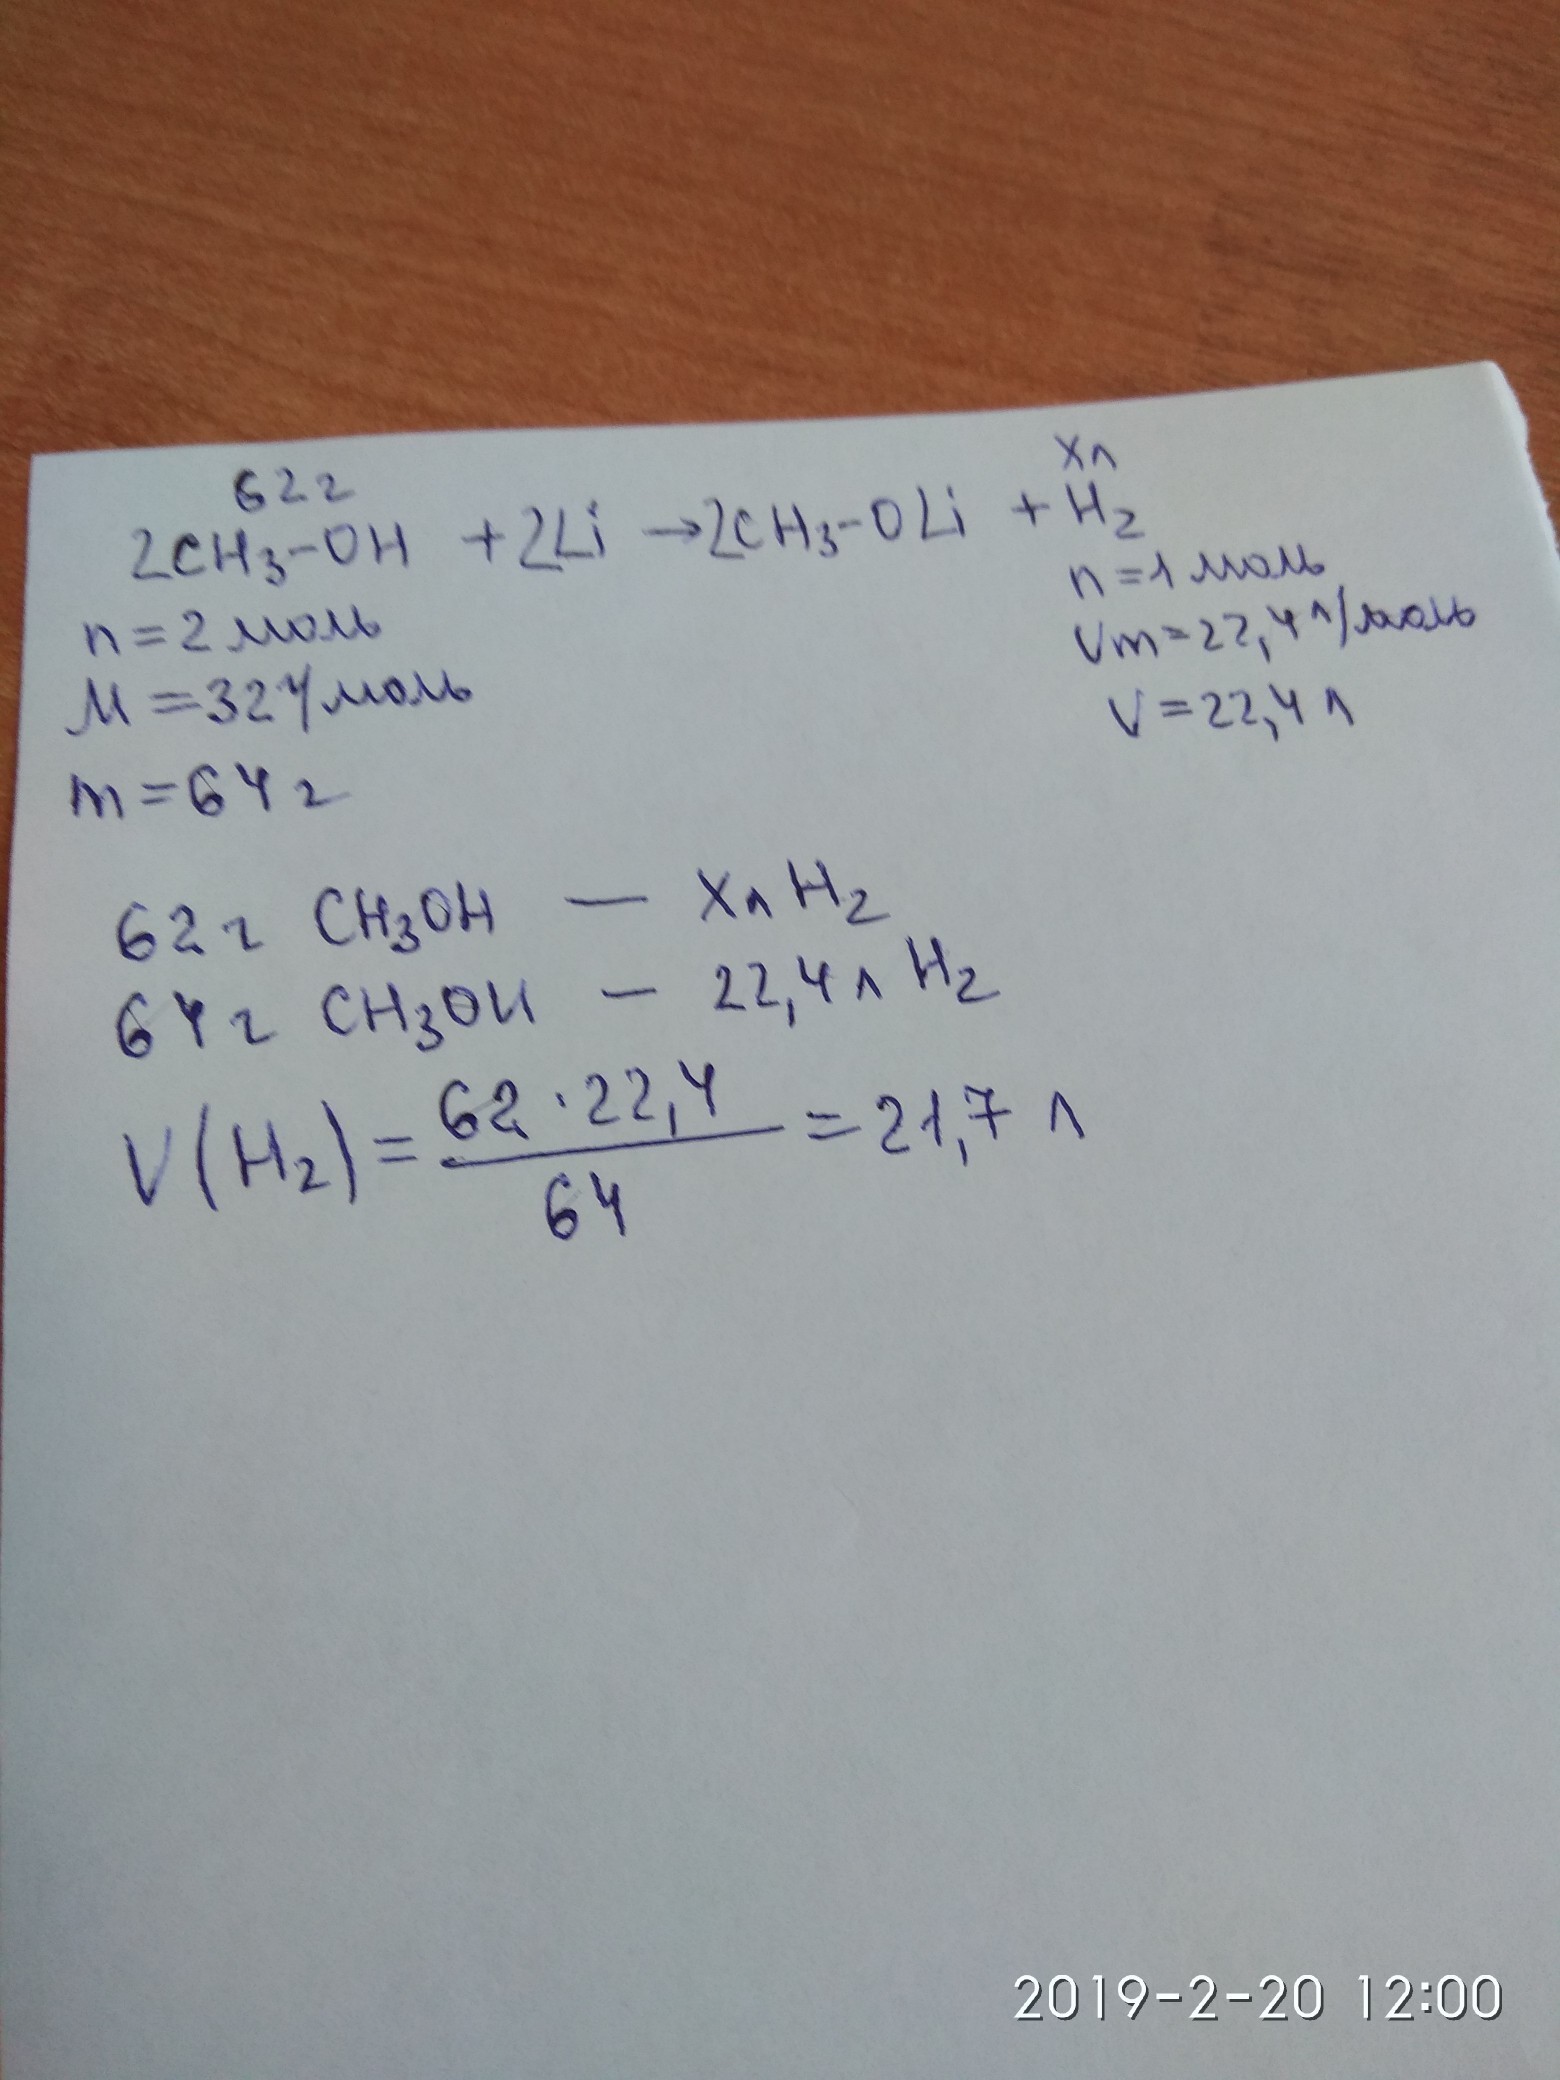 62г
xл
2CH₃-OH + 2Li → 2CH₃-OLi + H₂
n = 2 моль
n = 1 моль
M = 32 г/моль
Vm = 22,4 л/моль
m = 64 г
V = 22,4 л
62 г CH₃OH — xл H₂
64 г CH₃OH — 22,4 л H₂
V(H₂) = 62 · 22,4 / 64 = 21,7 л
2019-2-20 12:00